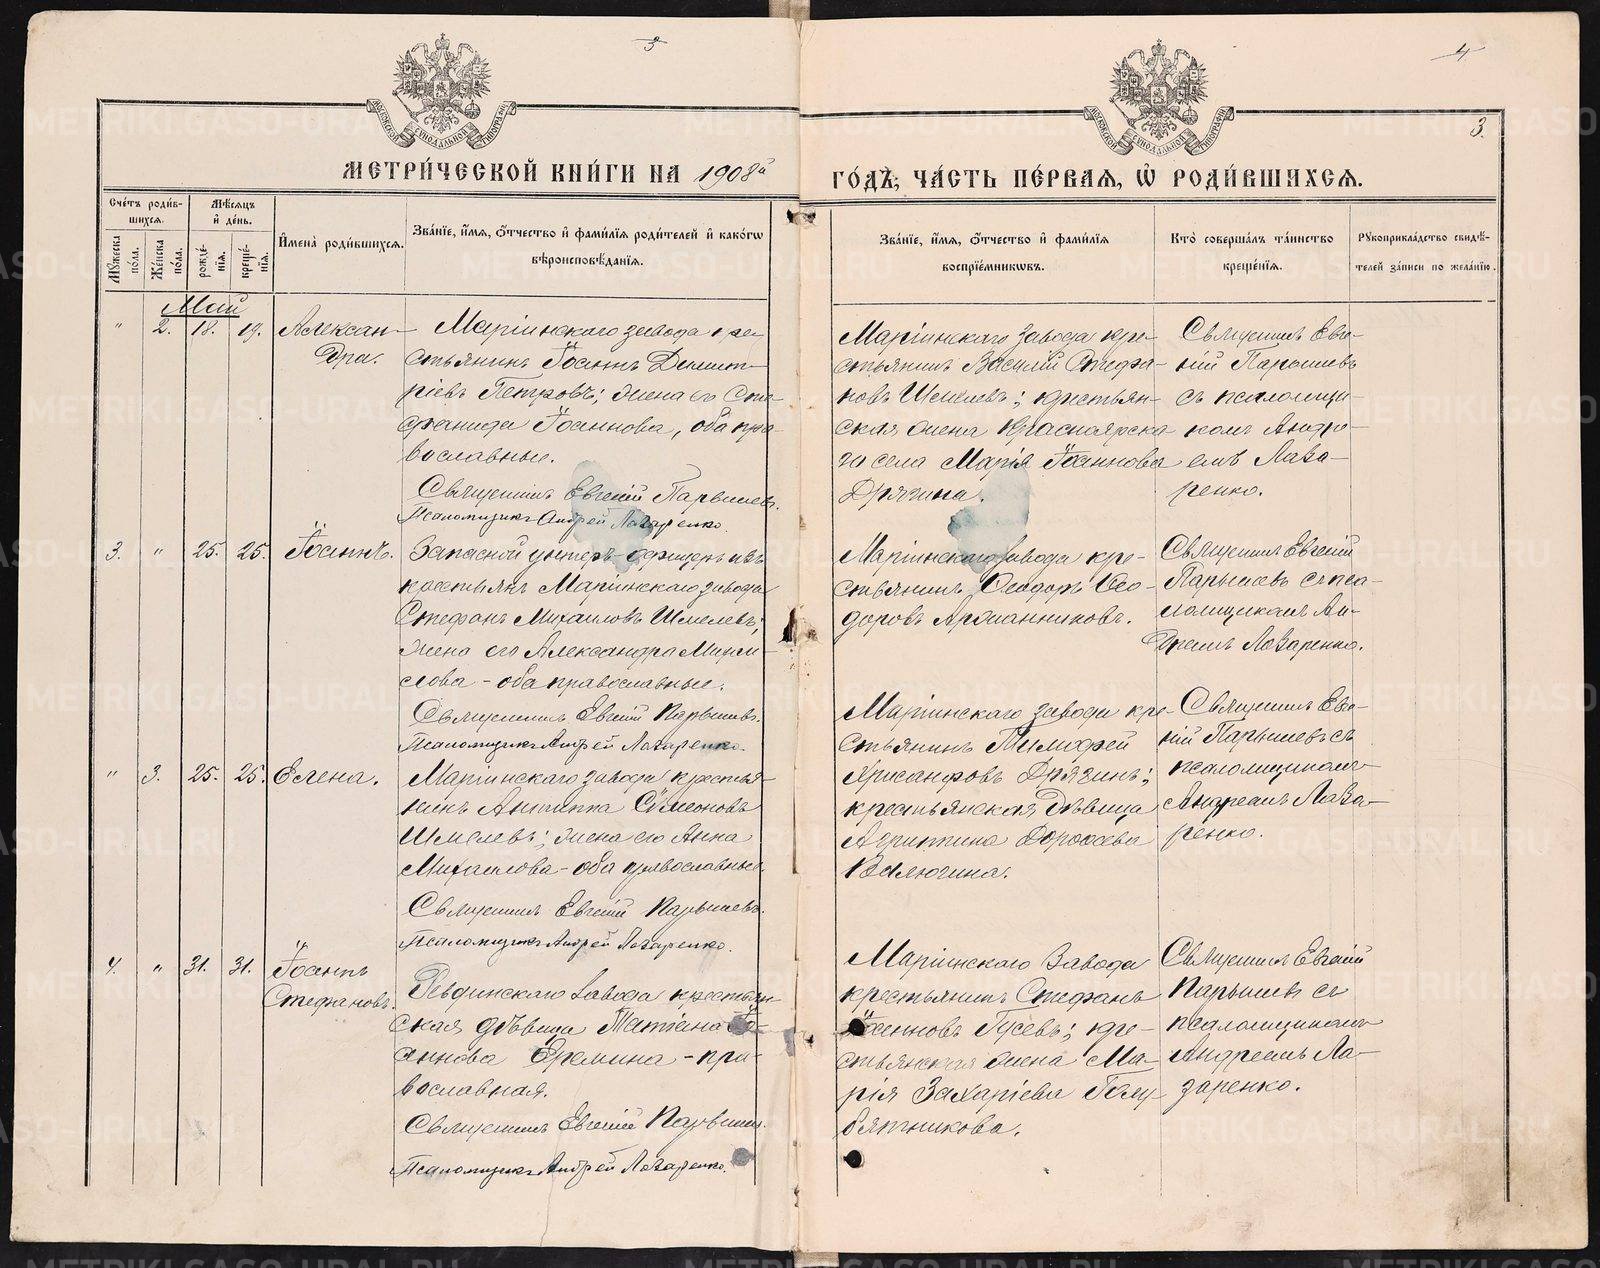 3
4
3.
МОСКОВСКОЙ СѴНОДАЛЬНОЙ ТИПОГРАФІИ
МОСКОВСКОЙ СѴНОДАЛЬНОЙ ТИПОГРАФІИ
МЕТРИ́ЧЕСКОЙ КНИ́ГИ НА 1908й
ГО́ДЪ, ЧА́СТЬ ПЕ́РВАЯ, Ѡ РОДИ́ВШИХСЯ.
Сче́тъ роди́в-
шихся.
Мꙋ́жеска по́ла.
Же́нска по́ла.
Мѣ́сяцъ
и де́нь.
рожде́-
нїя.
креще́-
нїя.
Имена̀ роди́вшихся.
Зва́нїе, и́мя, ѻ́тчество и фами́лїя роди́телей и како́гѡ
вѣроисповѣ́данїя.
Зва́нїе, и́мя, ѻ́тчество и фами́лїя
воспрїе́мникѡвъ.
Кто̀ соверша́лъ та́инство
креще́нїя.
Рꙋкоприкла́дство свидѣ́-
телей за́писи по жела́нїю.
Май
" 2. 18. 19. Алексан-
дра.
Маріинскаго завода кре-
стьянинъ Іоаннъ Димит-
ріевъ Петровъ; жена его Сте-
фанида Іоаннова, оба пра-
вославные.
Священникъ Евгеній Парышевъ.
Псаломщикъ Андрей Лазаренко.
Маріинскаго завода кре-
стьянинъ Василій Стефа-
новъ Шмелевъ; крестьян-
ская жена Красноярска-
го села Марія Іоаннова
Дрягина.
Священникъ Евге-
ній Парышевъ
съ псаломщи-
комъ Андре-
емъ Лаза-
ренко.
3. " 25. 25. Іоаннъ.
Запасной унтеръ-офицеръ изъ
крестьянъ Маріинскаго завода
Стефанъ Михаиловъ Шмелевъ;
жена его Александра
оба православные.
Священникъ Евгеній Парышевъ.
Псаломщикъ Андрей Лазаренко.
Маріинскаго завода кре-
стьянинъ Ѳеодоръ Ѳео-
доровъ Аржанниковъ.
Священникъ Евгеній
Парышевъ съ пса-
ломщикомъ Ан-
дреемъ Лазаренко.
" 3. 25. 25. Елена.
Маріинскаго завода крестья-
нинъ Антипа Сѵмеоновъ
Шмелевъ; жена его Анна
Михаилова - оба православные.
Священникъ Евгеній Парышевъ.
Псаломщикъ Андрей Лазаренко.
Маріинскаго завода кре-
стьянинъ Тимофей
Хрисанфовъ Дрягинъ;
крестьянская дѣвица
Агриппина Дороѳеева
Валюгина.
Священникъ Евге-
ній Парышевъ съ
псаломщикомъ
Андреемъ Лаза-
ренко.
4. " 31. 31. Іоаннъ
Стефановъ.
Ревдинскаго завода крестьян-
ская дѣвица Татіана Іо-
аннова Еремина - пра-
вославная.
Священникъ Евгеній Парышевъ.
Псаломщикъ Андрей Лазаренко.
Маріинскаго Завода
крестьянинъ Стефанъ
Іоанновъ Гусевъ; кре-
стьянская жена Ма-
рія Захаріева Голу-
бятникова.
Священникъ Евгеній
Парышевъ съ
псаломщикомъ
Андреемъ Ла-
заренко.
METRIKI.GASO-URAL.RU